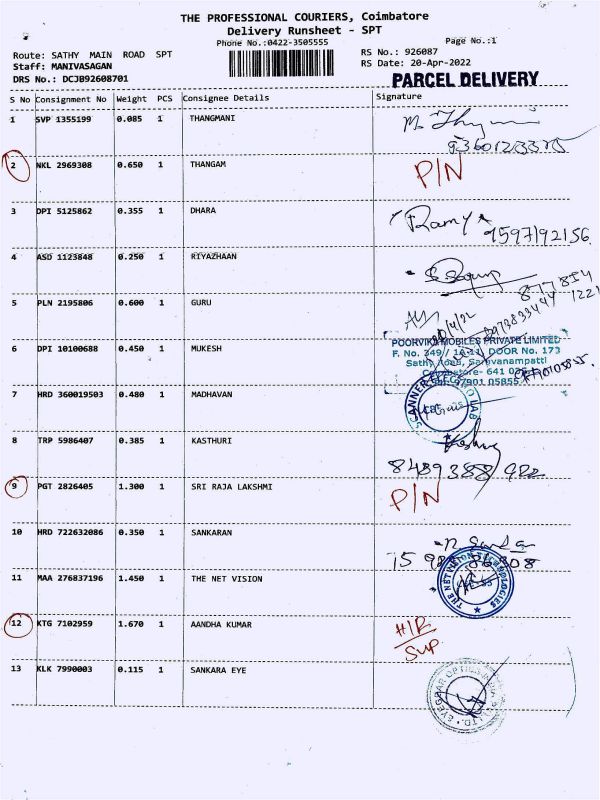 THE PROFESSIONAL COURIERS, Coimbatore
Delivery Runsheet - SPT
Phone No.:0422-3505555
Page No.:1
Route: SATHY MAIN ROAD SPT
RS No.: 926087
Staff: MANIVASAGAN
RS Date: 20-Apr-2022
DRS No.: DCJB92608701
PARCEL DELIVERY
S No Consignment No Weight PCS Consignee Details Signature
1 SVP 1355199 0.085 1 THANGMANI
2 NKL 2969308 0.650 1 THANGAM P/N
3 DPI 5125862 0.355 1 DHARA
9597192156
4 ASD 1123848 0.250 1 RIYAZHAAN
5 PLN 2195806 0.600 1 GURU
6 DPI 10100688 0.450 1 MUKESH
POORVIKA MOBILES PRIVATE LIMITED
F. No. 349/ 1A-11, DOOR No. 173
Sathy Road, Saravanampatti
Coimbatore- 641 035
97901 05855
7 HRD 360019503 0.480 1 MADHAVAN
8 TRP 5986407 0.385 1 KASTHURI
9 PGT 2826405 1.300 1 SRI RAJA LAKSHMI P/N
10 HRD 722632086 0.350 1 SANKARAN
11 MAA 276837196 1.450 1 THE NET VISION
THE NETVISION TECHNOLOGIES
12 KTG 7102959 1.670 1 AANDHA KUMAR
13 KLK 7990003 0.115 1 SANKARA EYE